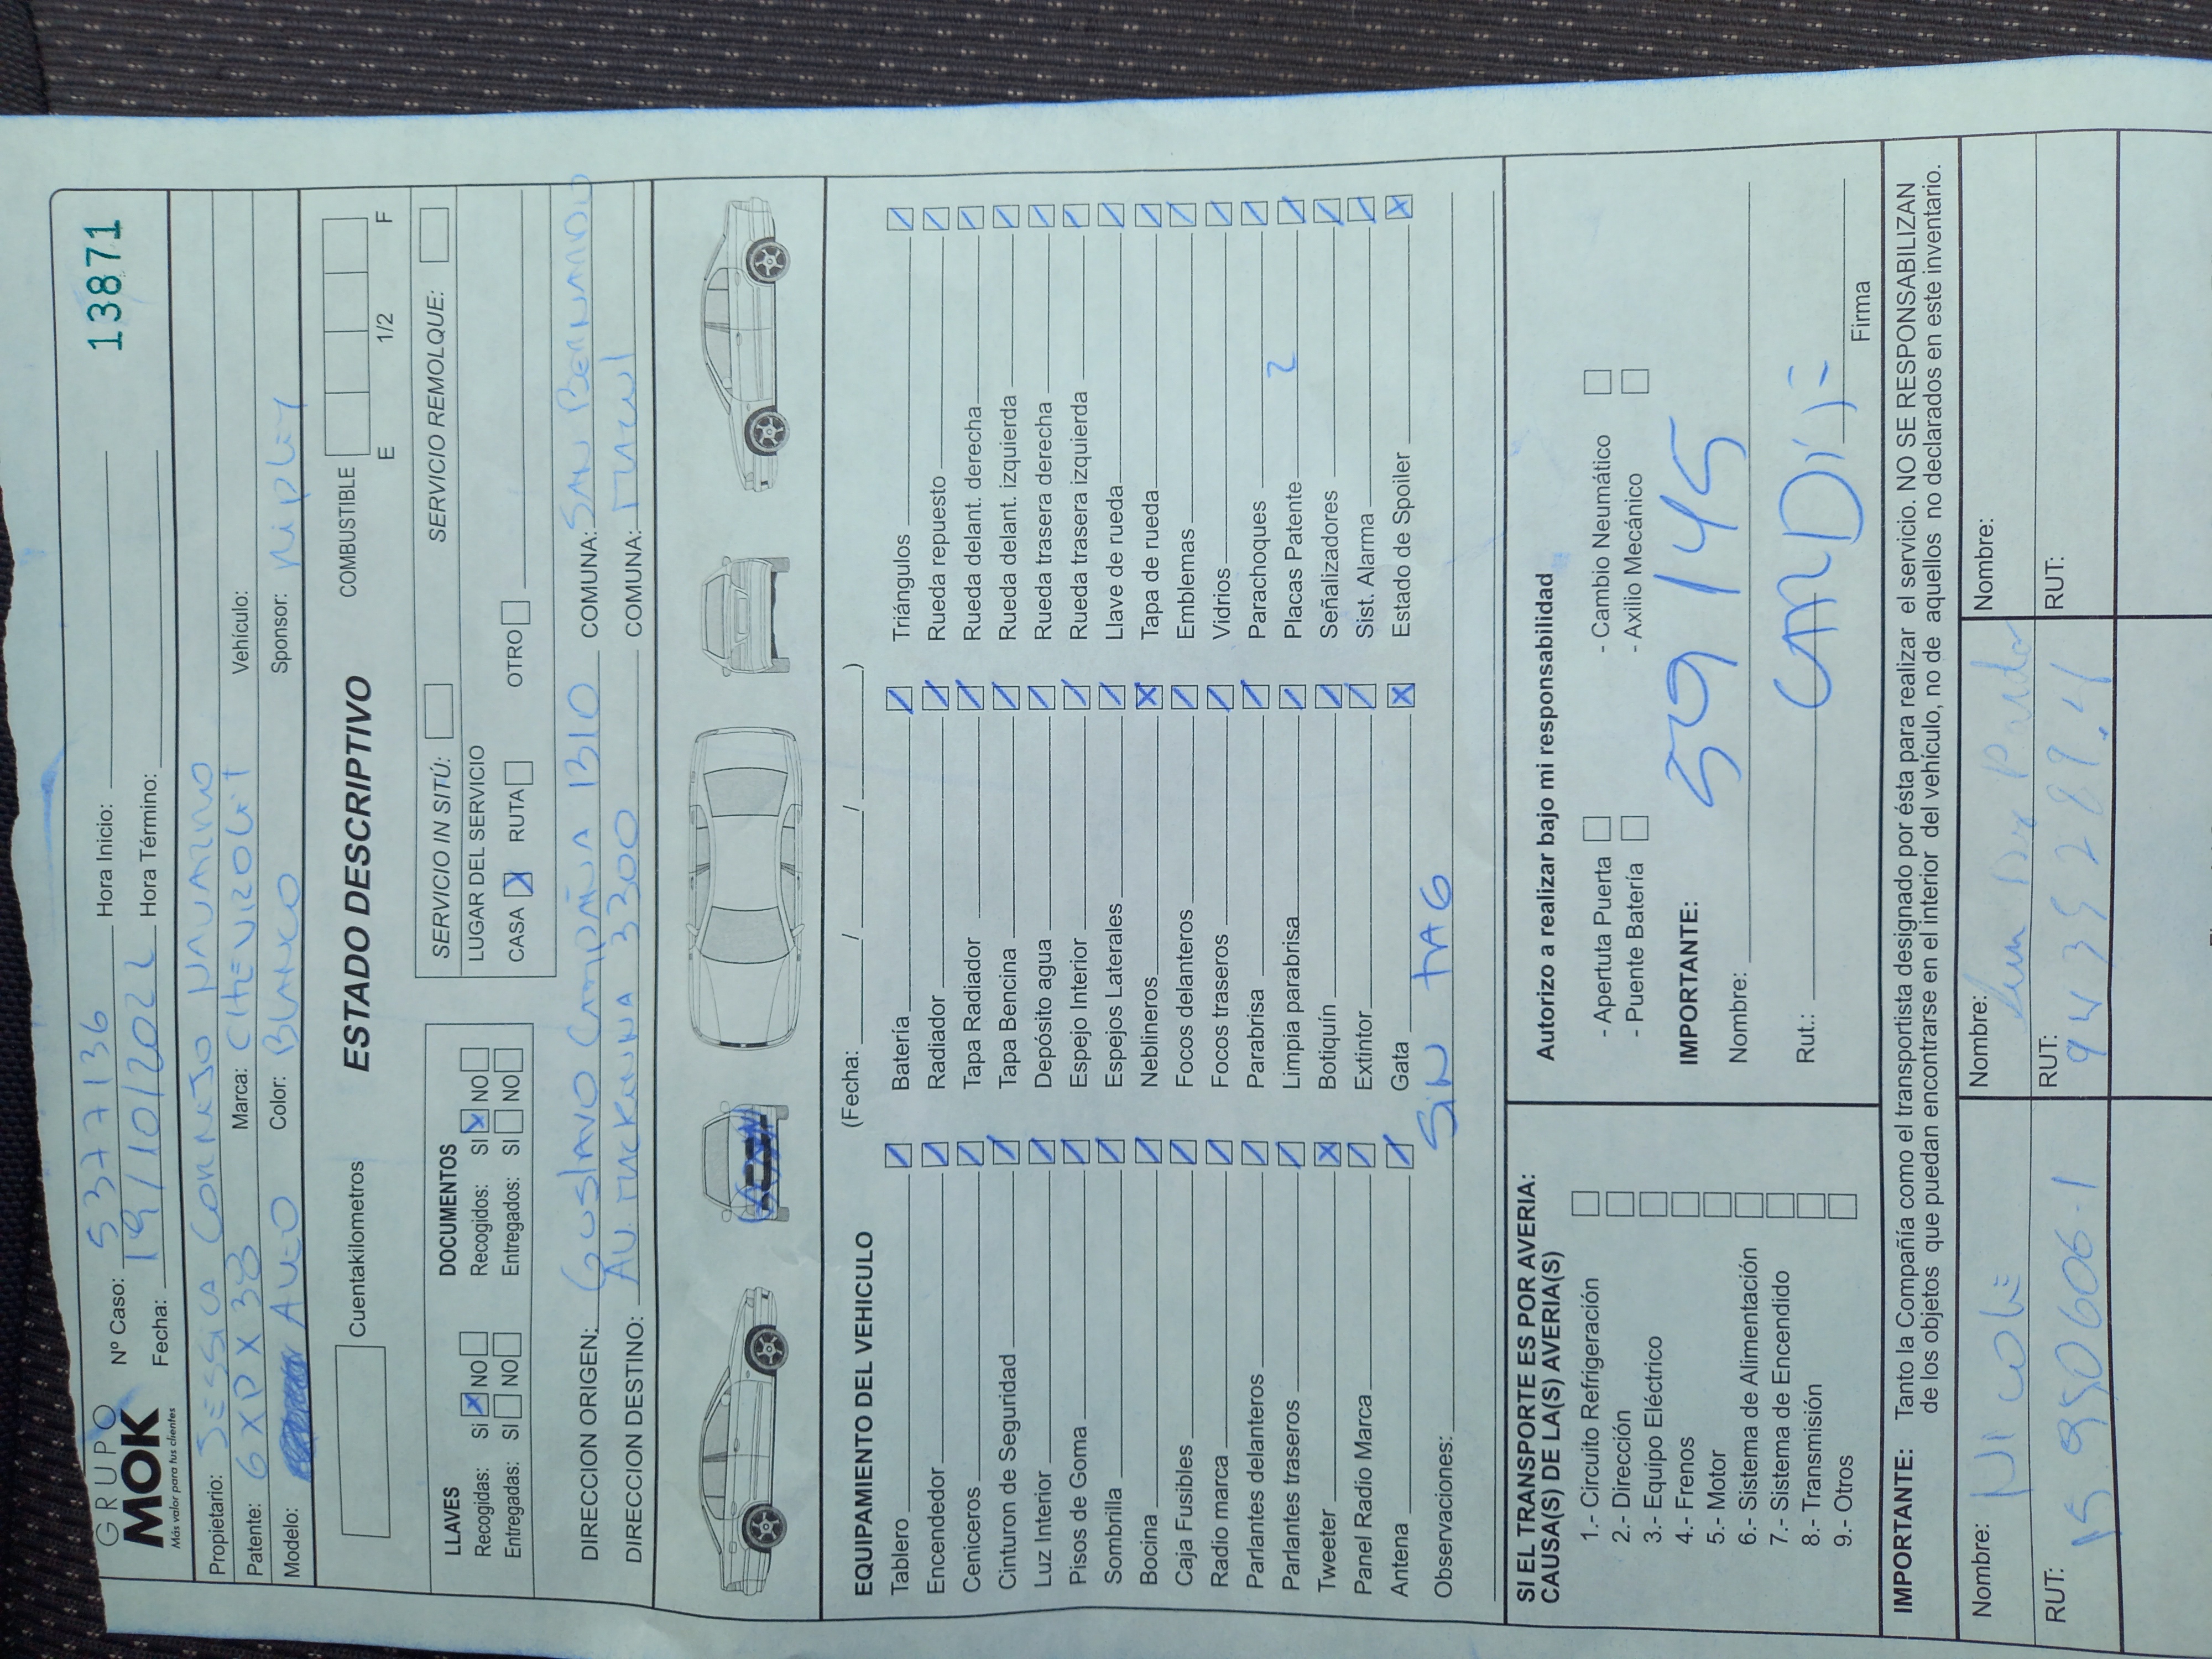 GRUPO
MOK
Más valor para tus clientes
Nº Caso: 5377136 Hora Inicio:
13871
Fecha: 19/10/2022 Hora Término:
Propietario: JESSICA CORNEJO NAVARRO
Patente: GXPX38 Marca: CHEVROLET Vehículo:
Modelo: AVEO Color: BLANCO Sponsor: RIPLEY
Cuentakilometros
ESTADO DESCRIPTIVO
COMBUSTIBLE
E 1/2 F
LLAVES
Recogidas: Si X NO
Entregadas: SI NO
DOCUMENTOS
Recogidos: SI X NO
Entregados: SI NO
SERVICIO IN SITÚ:
SERVICIO REMOLQUE:
LUGAR DEL SERVICIO
CASA X RUTA OTRO
DIRECCION ORIGEN: GUSTAVO CAMPAÑA 1310 COMUNA: SAN BERNARDO
DIRECCION DESTINO: AV. MACKENNA 3300 COMUNA: MACUL
EQUIPAMIENTO DEL VEHICULO
(Fecha: / / )
Tablero Batería Triángulos
Encendedor Radiador Rueda repuesto
Ceniceros Tapa Radiador Rueda delant. derecha
Cinturon de Seguridad Tapa Bencina Rueda delant. izquierda
Luz Interior Depósito agua Rueda trasera derecha
Pisos de Goma Espejo Interior Rueda trasera izquierda
Sombrilla Espejos Laterales Llave de rueda
Bocina Neblineros X Tapa de rueda
Caja Fusibles Focos delanteros Emblemas
Radio marca Focos traseros Vidrios
Parlantes delanteros Parabrisa Parachoques
Parlantes traseros Limpia parabrisa Placas Patente 2
Tweeter X Botiquín Señalizadores
Panel Radio Marca Extintor Sist. Alarma
Antena Gata X Estado de Spoiler X
Observaciones: SIN TAG
SI EL TRANSPORTE ES POR AVERIA:
CAUSA(S) DE LA(S) AVERIA(S)
1.- Circuito Refrigeración
2.- Dirección
3.- Equipo Eléctrico
4.- Frenos
5.- Motor
6.- Sistema de Alimentación
7.- Sistema de Encendido
8.- Transmisión
9.- Otros
Autorizo a realizar bajo mi responsabilidad
- Apertuta Puerta - Cambio Neumático
- Puente Batería - Axilio Mecánico
IMPORTANTE:
Nombre: 39145
Rut.:
Firma
IMPORTANTE: Tanto la Compañía como el transportista designado por ésta para realizar el servicio. NO SE RESPONSABILIZAN
de los objetos que puedan encontrarse en el interior del vehículo, no de aquellos no declarados en este inventario.
Nombre: NICOLE Nombre: Nombre:
RUT: 15.950606-1 RUT: RUT: